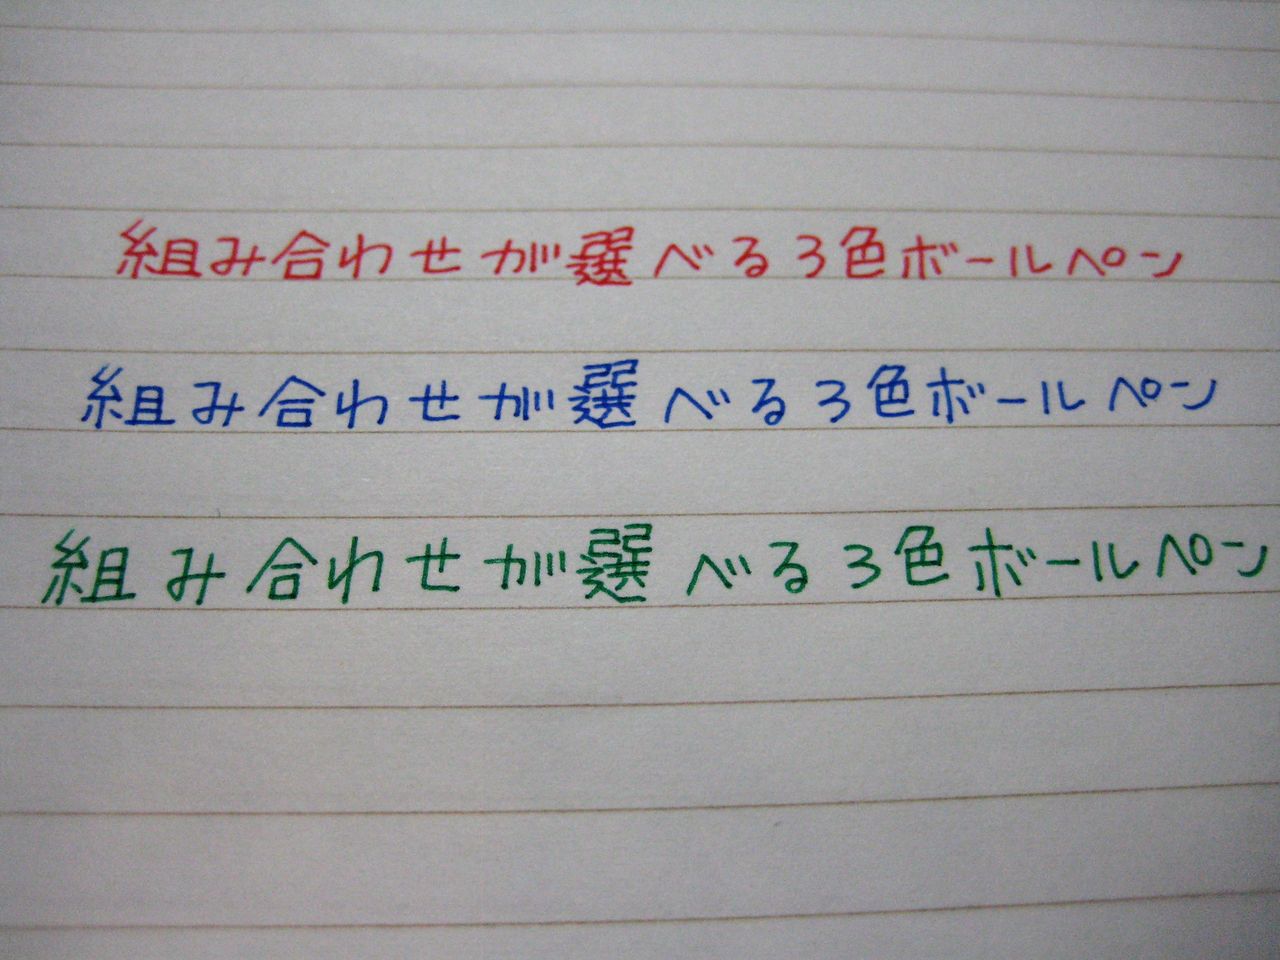 組み合わせが選べる3色ボールペン
組み合わせが選べる3色ボールペン
組み合わせが選べる3色ボールペン